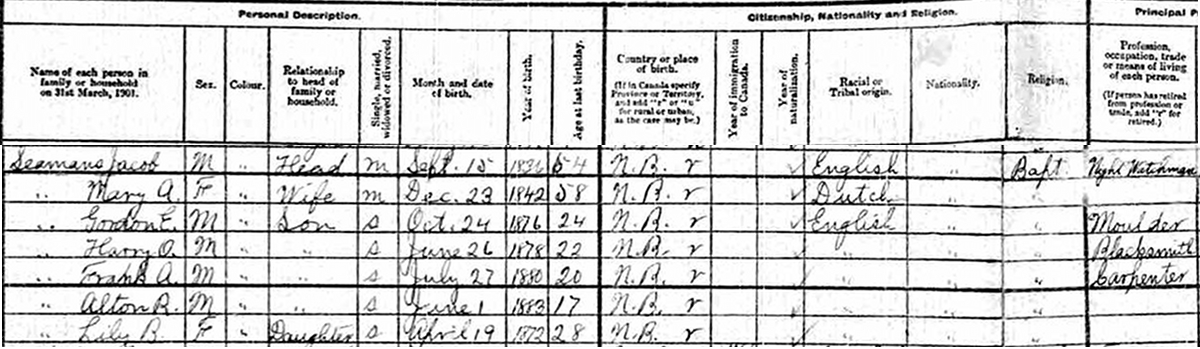 Personal Description. Citizenship, Nationality and Religion. Principal
Name of each person in family or household on 31st March, 1901. Sex. Colour. Relationship to head of family or household. Single, married, widowed or divorced. Month and date of birth. Year of birth. Age at last birthday. Country or place of birth. (If in Canada specify Province or Territory, and add "r" or "u" for rural or urban, as the case may be.) Year of immigration to Canada. Year of naturalization. Racial or Tribal origin. Nationality. Religion. Profession, occupation, trade or means of living of each person. (If person has retired from profession or trade, add "r" for retired.)
Seamans Jacob M " Head m Sept. 15 54 N.B. r ✓ English " Bapt Night Watchman
" Mary A. F " Wife m Dec. 23 1842 58 N.B. r ✓ Dutch " "
" Gordon E. M " Son s Oct. 24 1876 24 N.B. r ✓ English " " Moulder
" Harry O. M " " s June 26 1878 22 N.B. r ✓ " " " Blacksmith
" Frank A. M " " s July 27 1880 20 N.B. r ✓ " " " Carpenter
" Alton R. M " " s June 1 1883 17 N.B. r ✓ " " "
" Lily B. F " Daughter s April 19 1872 28 N.B. r ✓ " " "